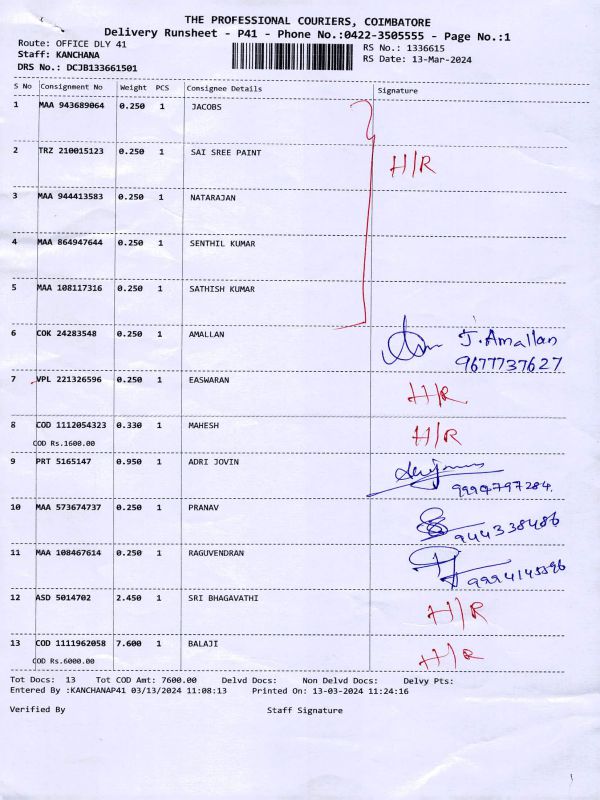 THE PROFESSIONAL COURIERS, COIMBATORE
Delivery Runsheet - P41 - Phone No.:0422-3505555 - Page No.:1
Route: OFFICE DLY 41 RS No.: 1336615
Staff: KANCHANA RS Date: 13-Mar-2024
DRS No.: DCJB133661501
S No Consignment No Weight PCS Consignee Details Signature
1 MAA 943689064 0.250 1 JACOBS
2 TRZ 210015123 0.250 1 SAI SREE PAINT H/R
3 MAA 944413583 0.250 1 NATARAJAN
4 MAA 864947644 0.250 1 SENTHIL KUMAR
5 MAA 108117316 0.250 1 SATHISH KUMAR
6 COK 24283548 0.250 1 AMALLAN J. Amallan
9677737627
7 VPL 221326596 0.250 1 EASWARAN H/R
8 COD 1112054323 0.330 1 MAHESH H/R
COD Rs.1600.00
9 PRT 5165147 0.950 1 ADRI JOVIN
9994797284.
10 MAA 573674737 0.250 1 PRANAV
944338486
11 MAA 108467614 0.250 1 RAGUVENDRAN
12 ASD 5014702 2.450 1 SRI BHAGAVATHI H/R
13 COD 1111962058 7.600 1 BALAJI H/R
COD Rs.6000.00
Tot Docs: 13 Tot COD Amt: 7600.00 Delvd Docs: Non Delvd Docs: Delvy Pts:
Entered By :KANCHANAP41 03/13/2024 11:08:13 Printed On: 13-03-2024 11:24:16
Verified By Staff Signature